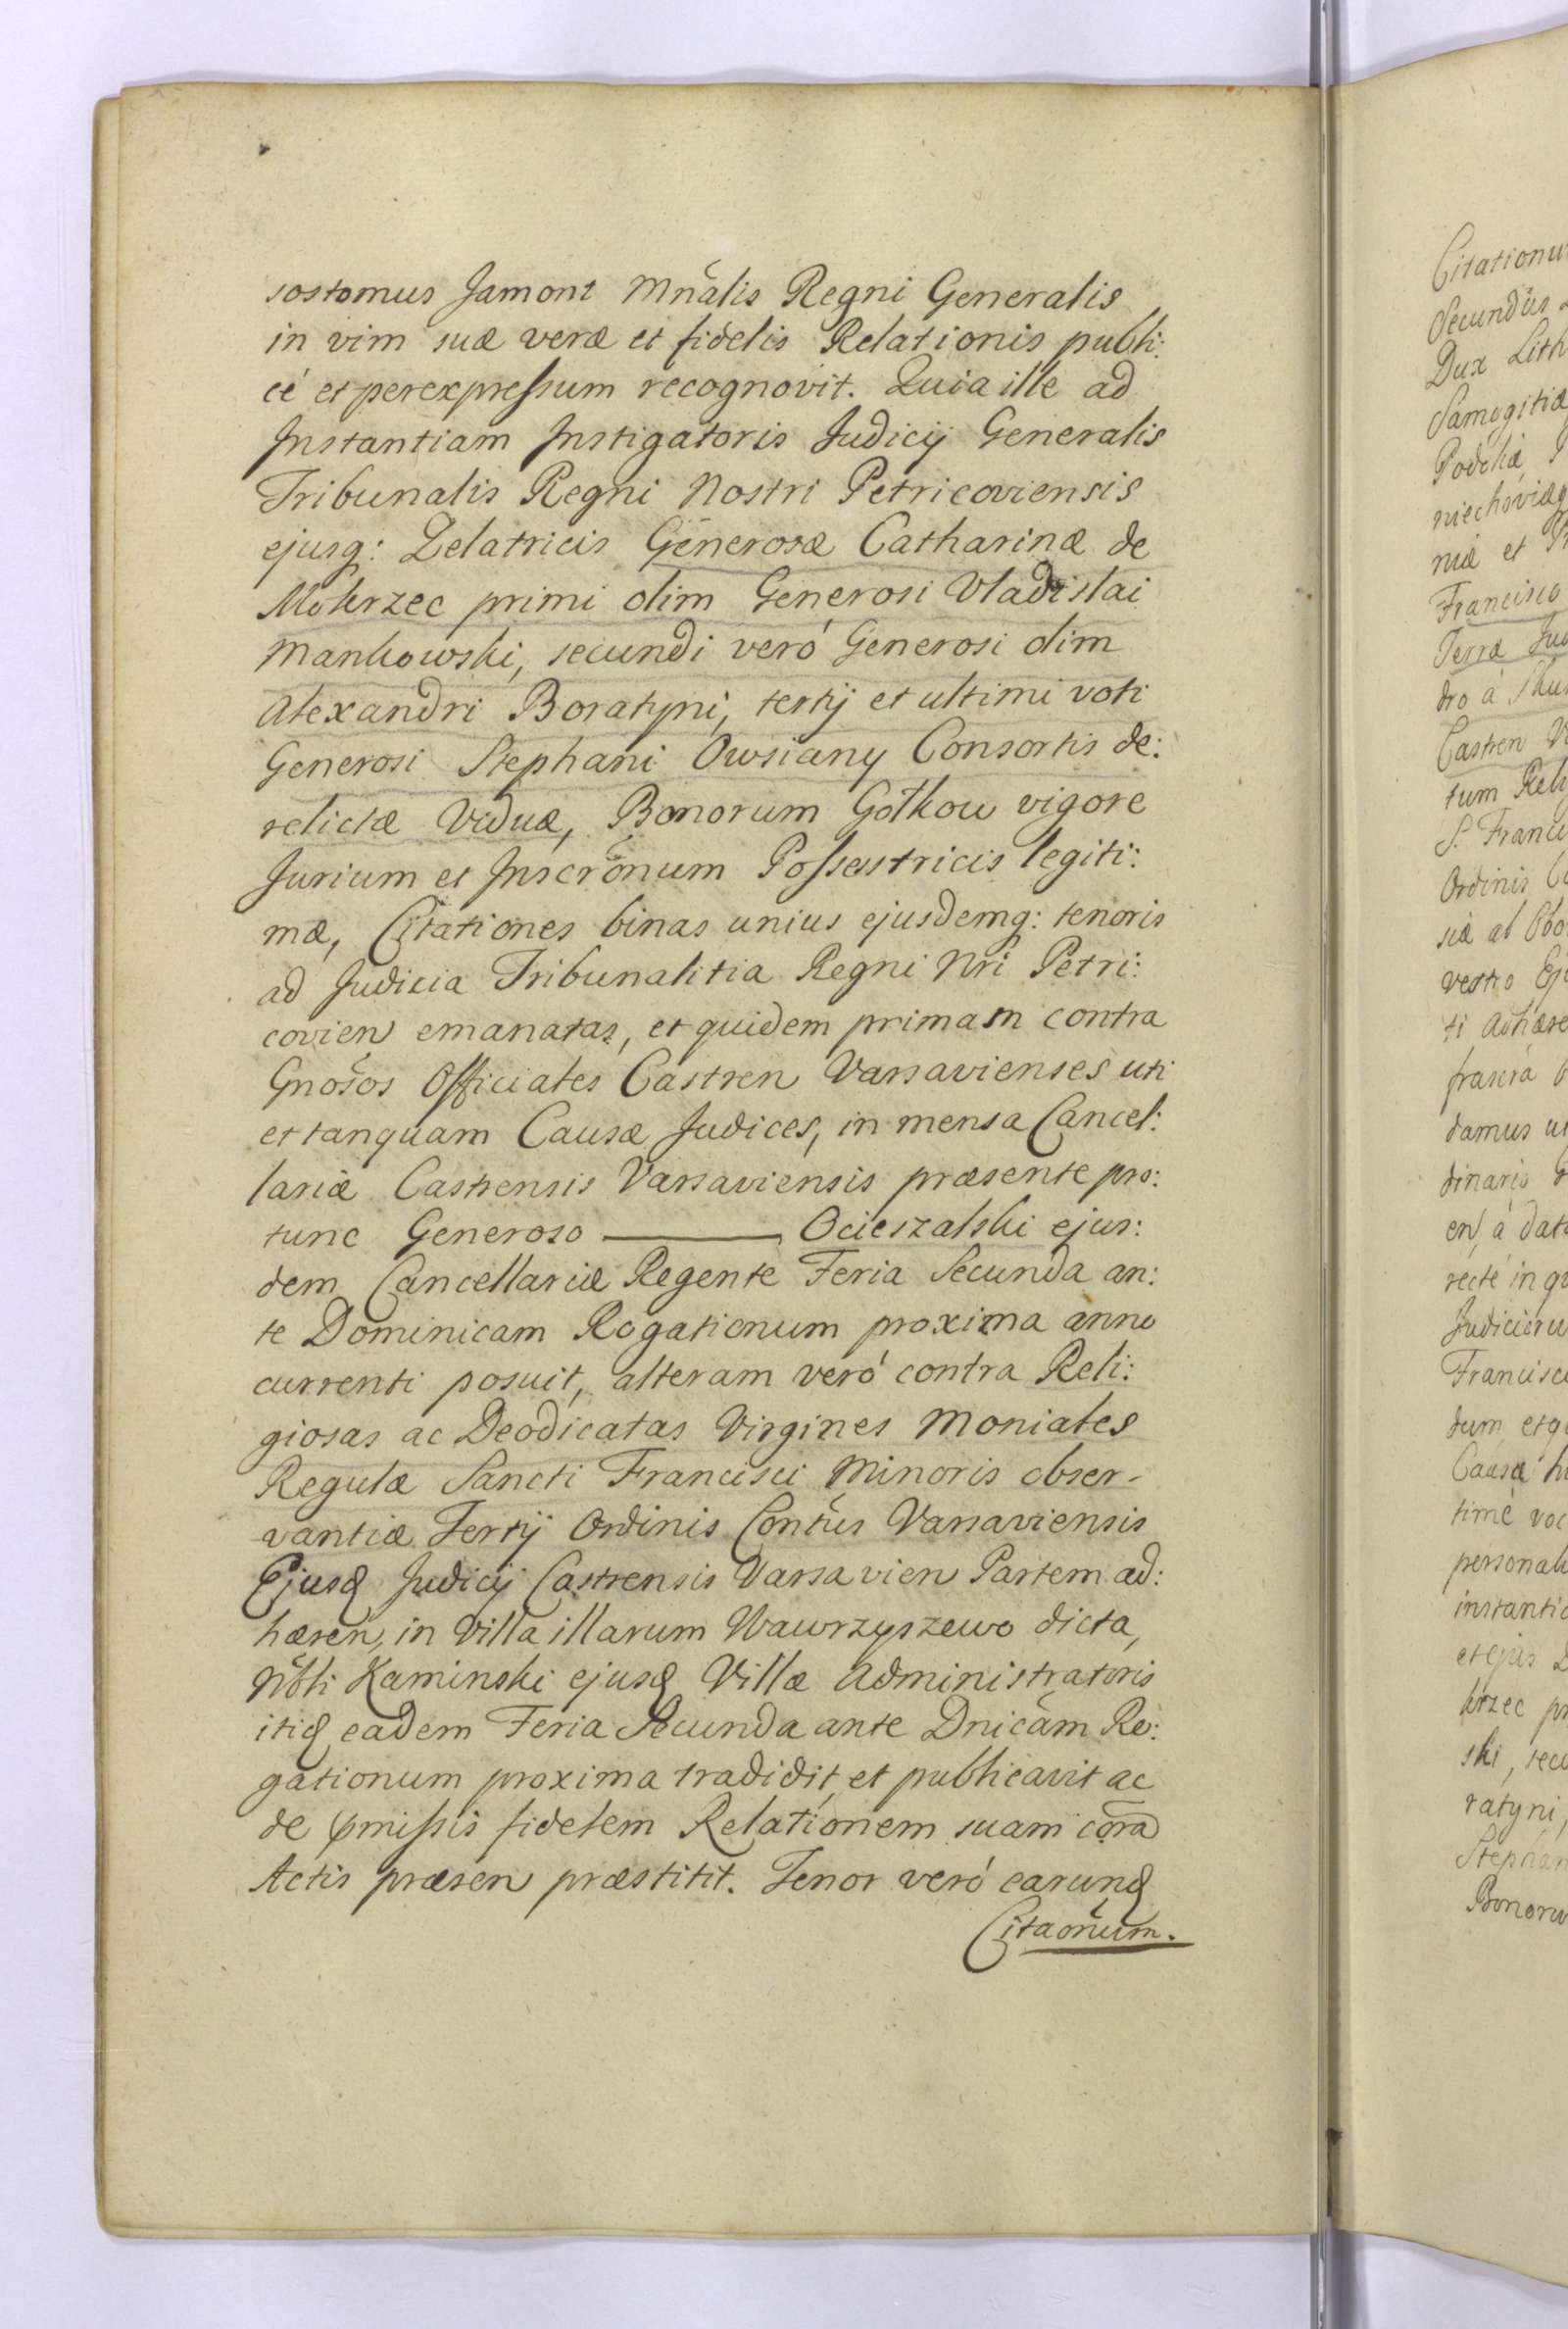 sostomus Jamont Mnãlis Regni Generalis
in vim suæ veræ et fidelis Relationis publi:
cé et perexpressum recognovit. Quia ille ad
Instantiam Instigatoris Judicij Generalis
Tribunalis Regni Nostri Petricoviensis
ejusq: Delatricis Generosæ Catharinæ de
Mokrzec primi olim Generosi Vladislai
Mankowski, secundi veró Generosi olim
Alexandri Boratyni, tertij et ultimi voti
Generosi Stephani Owsiany Consortis de:
relictæ Viduæ, Bonorum Gołkow vigore
Jurium et Inscrõnum Possestricis legiti:
mæ, Citationes binas unius ejusdemq: tenoris
ad Judicia Tribunalitia Regni Nri Petri:
covien emanatas, et quidem primam contra
Gnõsos Officiales Castren Varsavienses uti
et tanquam Causæ Judices, in mensa Cancel:
lariæ Castrensis Varsaviensis præsente pro:
tunc Generoso ——— Ocieszalski ejus:
dem Cancellariæ Regente Feria Secunda an:
te Dominicam Rogationum proxima anno
currenti posuit, alteram veró contra Reli:
giosas ac Deodicatas Virgines Moniales
Regulæ Sancti Francisci Minoris obser-
vantiæ Tertij Ordinis Contũs Varsaviensis
Ejusq Judicij Castrensis Varsavien Partem ad:
hæren, in Villa illarum Wawrzyszewo dicta,
Nbli Kaminski ejusq Villæ Administratoris
itiq eadem Feria Secunda ante Dnicãm Ro:
gationum proxima tradidit, et publicavit ac
de pmissis fidelem Relationem suam corã
Actis præsen præstitit. Tenor veró earunq
Citaõnum.
Citationu
Secundũs
Dux Lith
Samogitiæ
Podoliæ
niechoviæq
niæ et
Francisco
Terræ Jud
dro á
Castren
tum Reli
S. Franci
Ordinis
siæ at
vestro Ej
ti adhære
frascra
damus
dinario
en, á dat
recté in
Judicioru
Francisc
dum, etq
Causæ
timé voc
personali
instantia
et ejus
krzec pr
ski, secu
ratyni,
Stephan
Bonoru